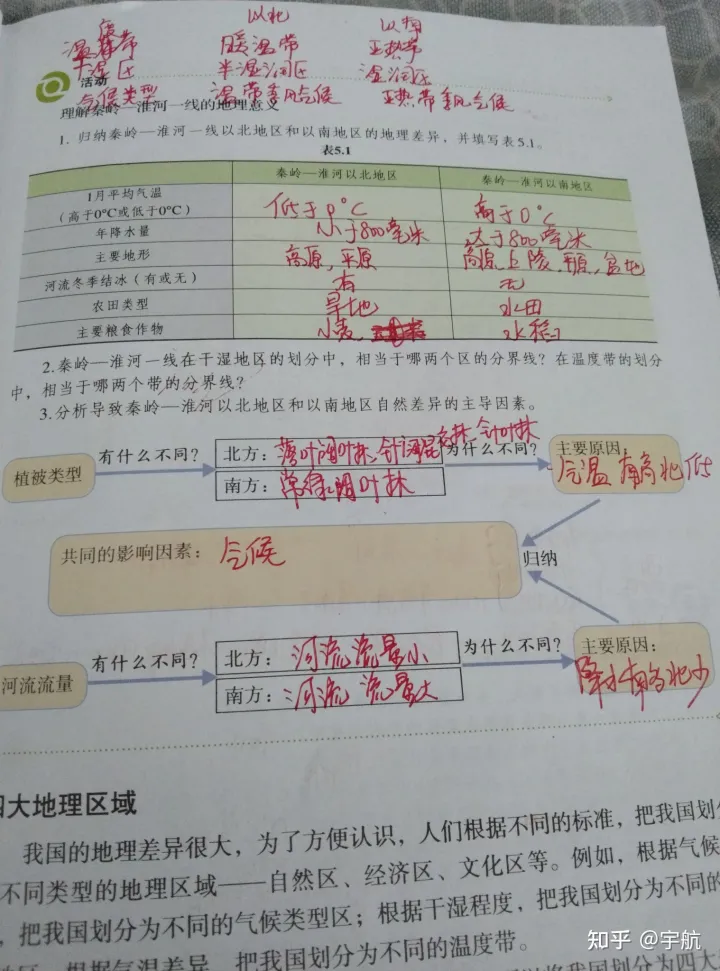 以北 以南
温度带 暖温带 亚热带
干湿区 半湿润区 湿润区
活动
气候类型 温带季风气候 亚热带季风气候
理解秦岭—淮河一线的地理意义
1. 归纳秦岭—淮河一线以北地区和以南地区的地理差异，并填写表5.1。
表5.1
秦岭—淮河以北地区 秦岭—淮河以南地区
1月平均气温
（高于0°C或低于0°C） 低于0°C 高于0°C
年降水量 小于800毫米 大于800毫米
主要地形 高原，平原 高原，丘陵，平原，盆地
河流冬季结冰（有或无） 有 无
农田类型 旱地 水田
主要粮食作物 小麦 水稻
2.秦岭—淮河一线在干湿地区的划分中，相当于哪两个区的分界线？在温度带的划分
中，相当于哪两个带的分界线？
3.分析导致秦岭—淮河以北地区和以南地区自然差异的主导因素。
植被类型 有什么不同？ 北方：落叶阔叶林、针阔混交林、针叶林 为什么不同？ 主要原因：
气温南高北低
南方：常绿阔叶林
共同的影响因素：气候
归纳
河流流量 有什么不同？ 北方：河流流量小 为什么不同？ 主要原因：
降水南多北少
南方：河流流量大
四大地理区域
我国的地理差异很大，为了方便认识，人们根据不同的标准，把我国划分
不同类型的地理区域——自然区、经济区、文化区等。例如，根据气候
，把我国划分为不同的气候类型区；根据干湿程度，把我国划分为不同的
地区；根据气温差异，把我国划分为不同的温度带。
将我国划分为四大
知乎 @宇航